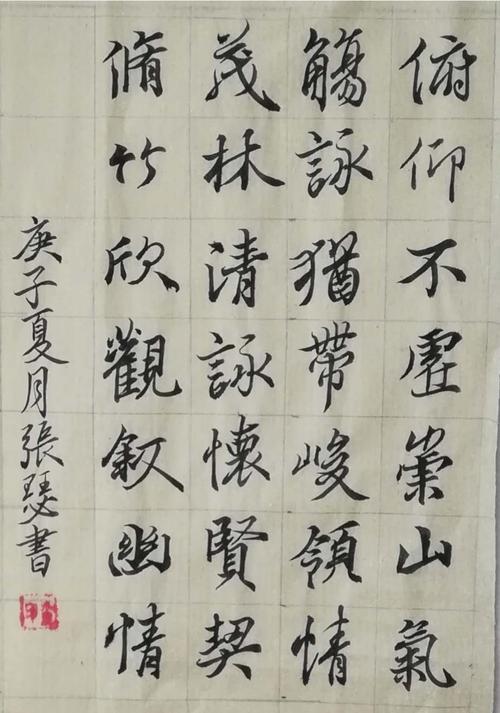 俯仰不虛崇山氣
觴詠猶帶峻領情
茂林清詠懷賢契
脩竹欣觀叙幽情
庚子夏月張瑟書